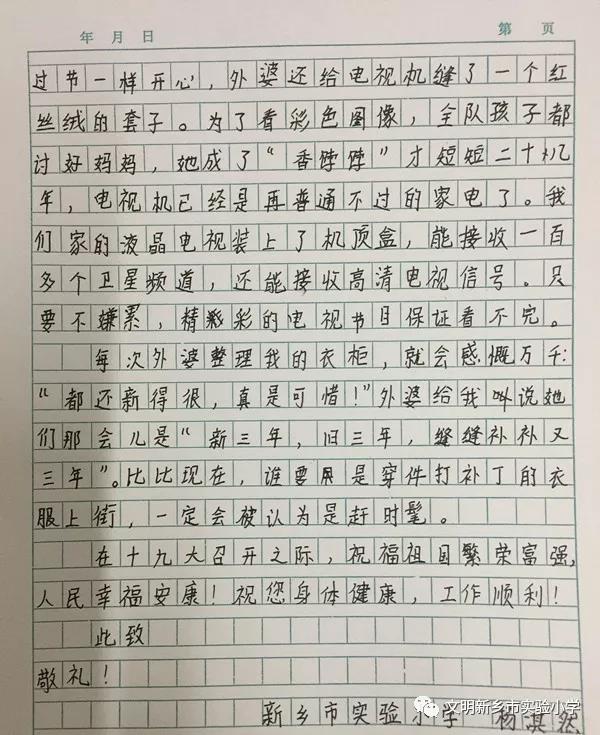 年 月 日 第 页
过节一样开心，外婆还给电视机缝了一个红
丝绒的套子。为了看彩色图像，全队孩子都
讨好妈妈，她成了“香饽饽”才短短二十几
年，电视机已经是再普通不过的家电了。我
们家的液晶电视装上了机顶盒，能接收一百
多个卫星频道，还能接收高清电视信号。只
要不嫌累，精彩的电视节目保证看不完。
每次外婆整理我的衣柜，就会感慨万千：
“都还新得很，真是可惜！”外婆给我叫说她
们那会儿是“新三年，旧三年，缝缝补补又
三年”。比比现在，谁要是穿件打补丁的衣
服上街，一定会被认为是赶时髦。
在十九大召开之际，祝福祖国繁荣富强，
人民幸福安康！祝您身体健康，工作顺利！
此致
敬礼！
新乡市实验小学 杨淇然
文明新乡市实验小学